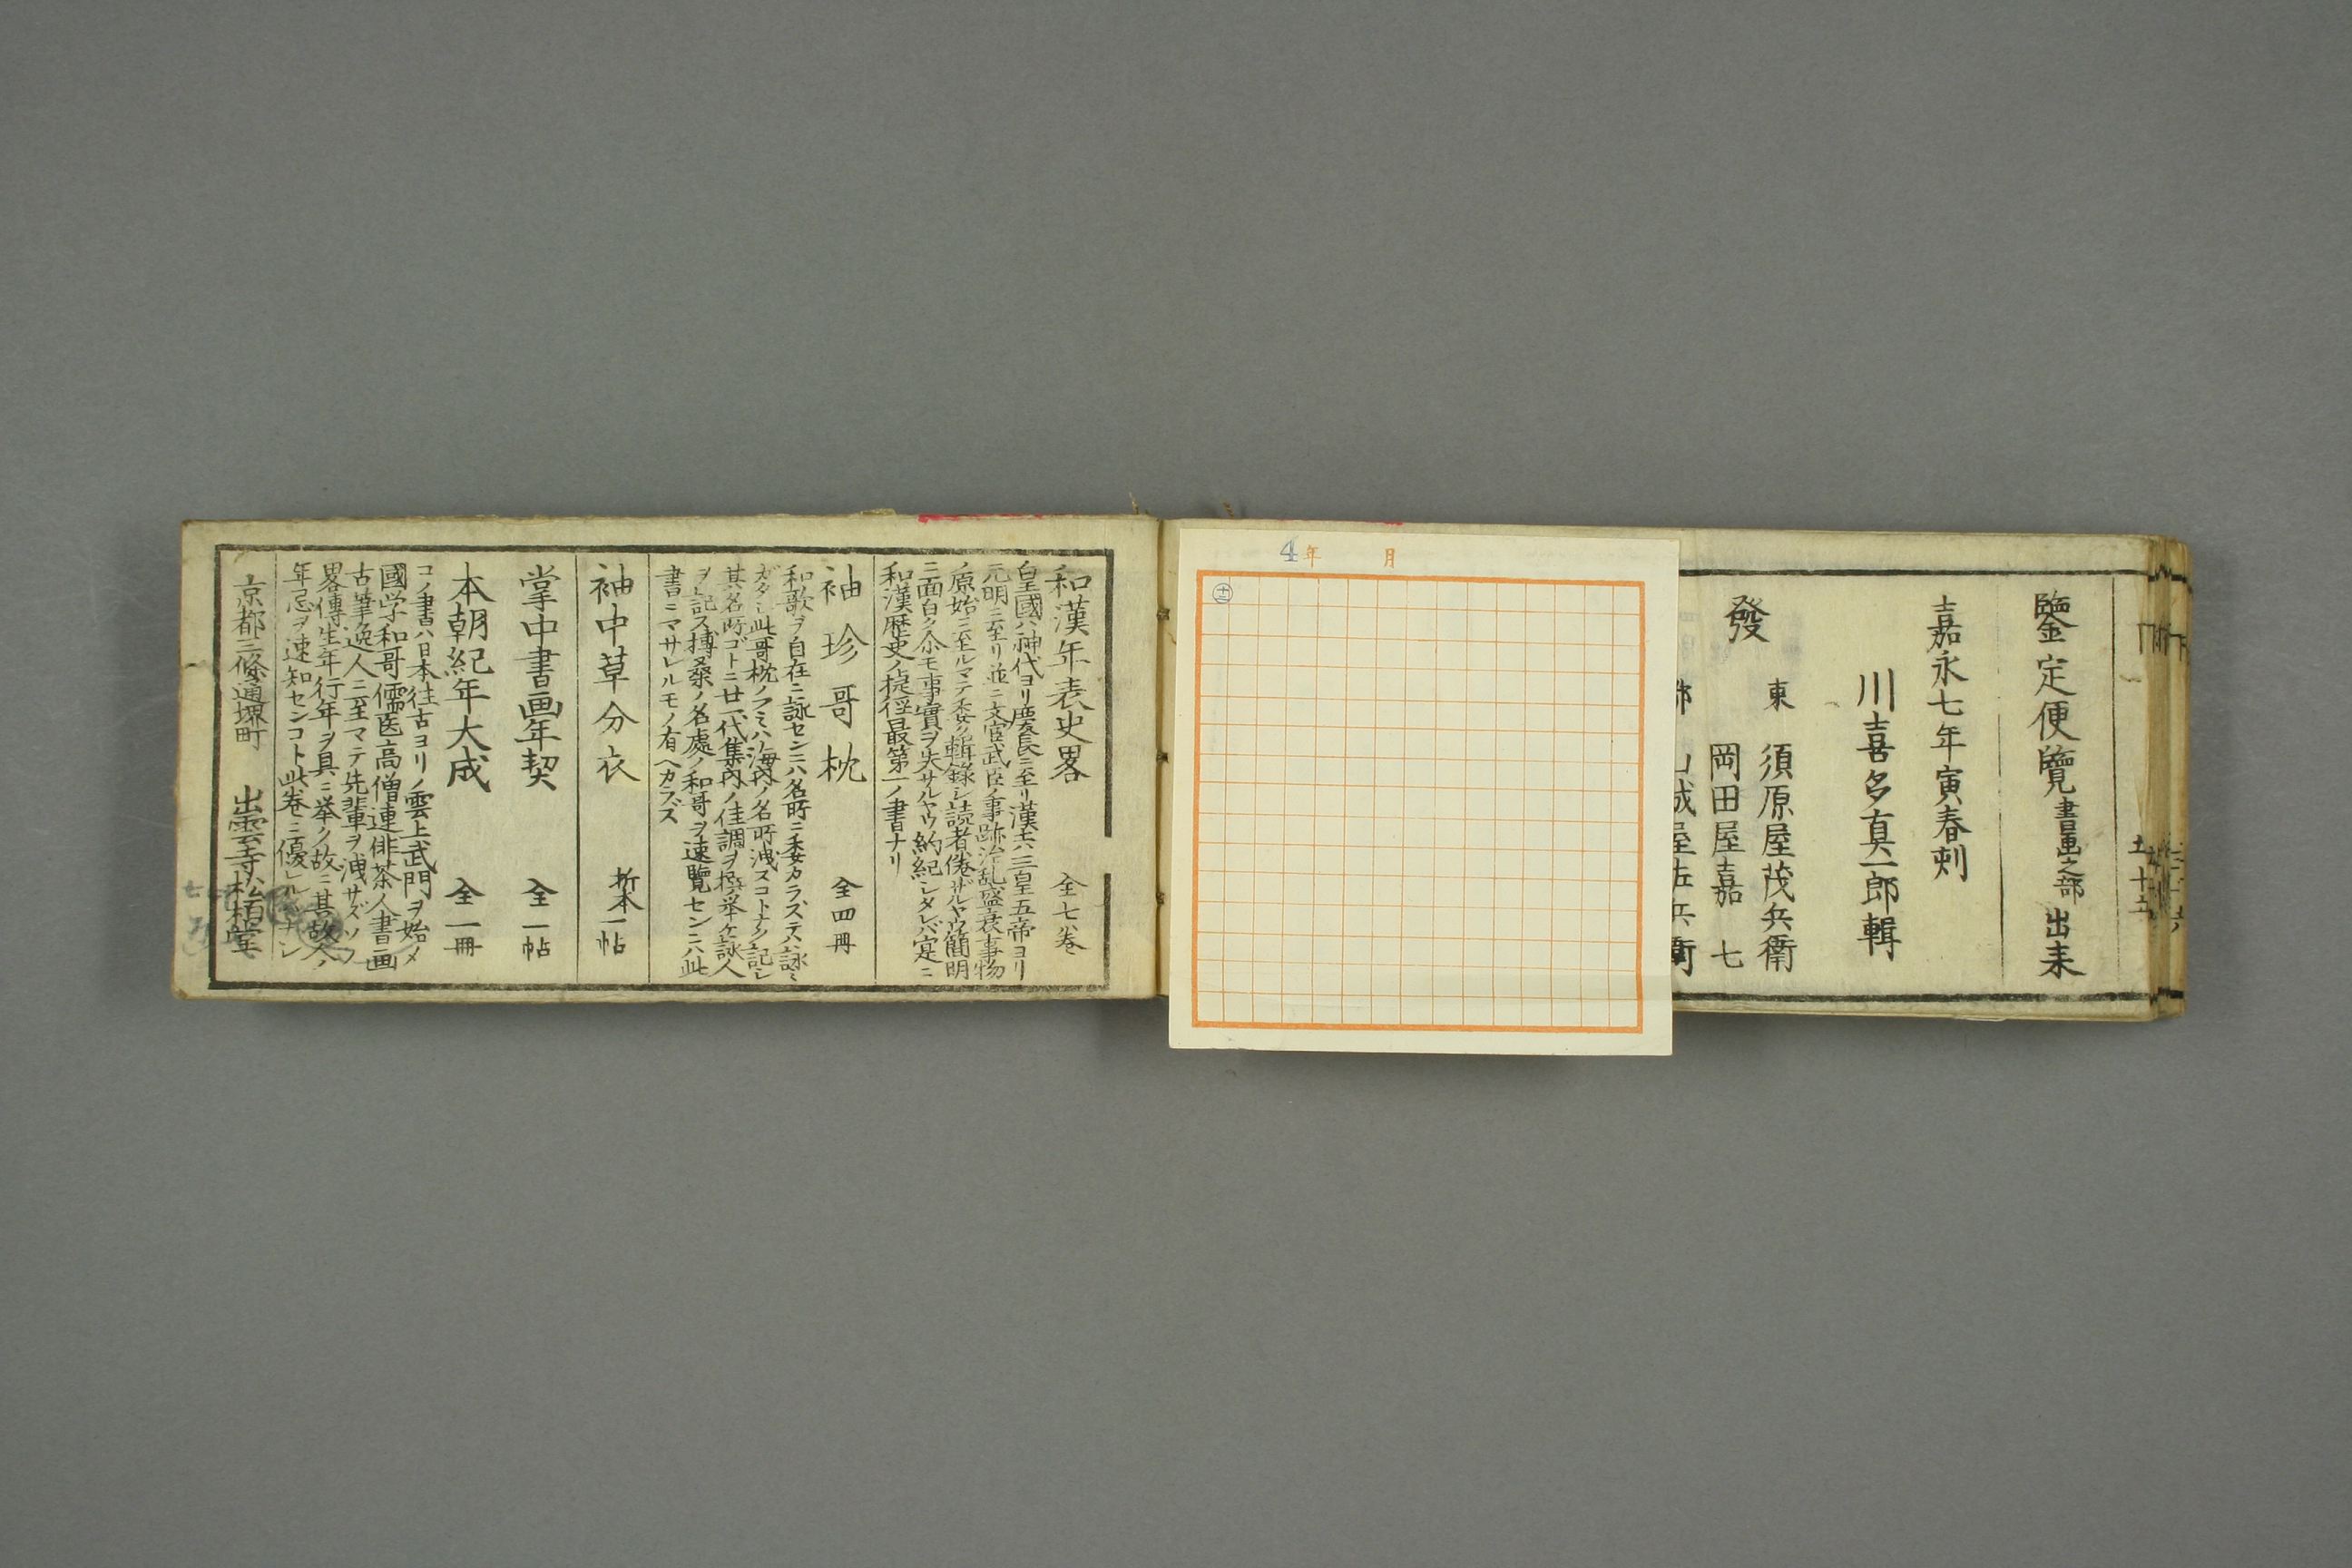 鑒定便覽 書画之部 出来
嘉永七年寅春刻
川喜多真一郎輯
發
東 須原屋茂兵衛
岡田屋嘉七
山城屋佐兵衛
4年 月
和漢年表史畧 全七巻
皇國ハ神代ヨリ慶長ニ至リ漢土ハ三皇五帝ヨリ
元明ニ至リ並ニ文官武臣ノ事跡治乱盛衰事物
ノ原始ニ至ルマテ委ク輯録シ読者倦ザルヤウ簡明
ニ面白ク尒モ事實ヲ失サルヤウ約紀シタレバ寔ニ
和漢歴史ノ捷徑最第一ノ書ナリ
袖珍哥枕 全四冊
和歌ヲ自在ニ詠センニハ名所ニ委カラズテハ詠ミ
ガタシ此哥枕ノフミハ海内ノ名所洩スコトナク記シ
其名所ゴトニ廿一代集内ノ佳調ヲ撰ノ挙ケ詠人
ヲ記ス搏桑ノ名處ノ和哥ヲ速覽センニハ此
書ニマサレルモノ有ヘカラズ
袖中草分衣 折本一帖
掌中書画年契 全一帖
本朝紀年大成 全一冊
コノ書ハ日本往古ヨリノ雲上武門ヲ始メ
國学和哥儒医高僧連俳茶人書画
古筆逸人ニ至マテ先輩ヲ洩サズソノ
畧傳生年行年ヲ具ニ挙ク故ニ其故人ノ
年忌ヲ速知センコト此巻ニ優レルハナシ
京都三條通堺町 出雲寺松栢堂